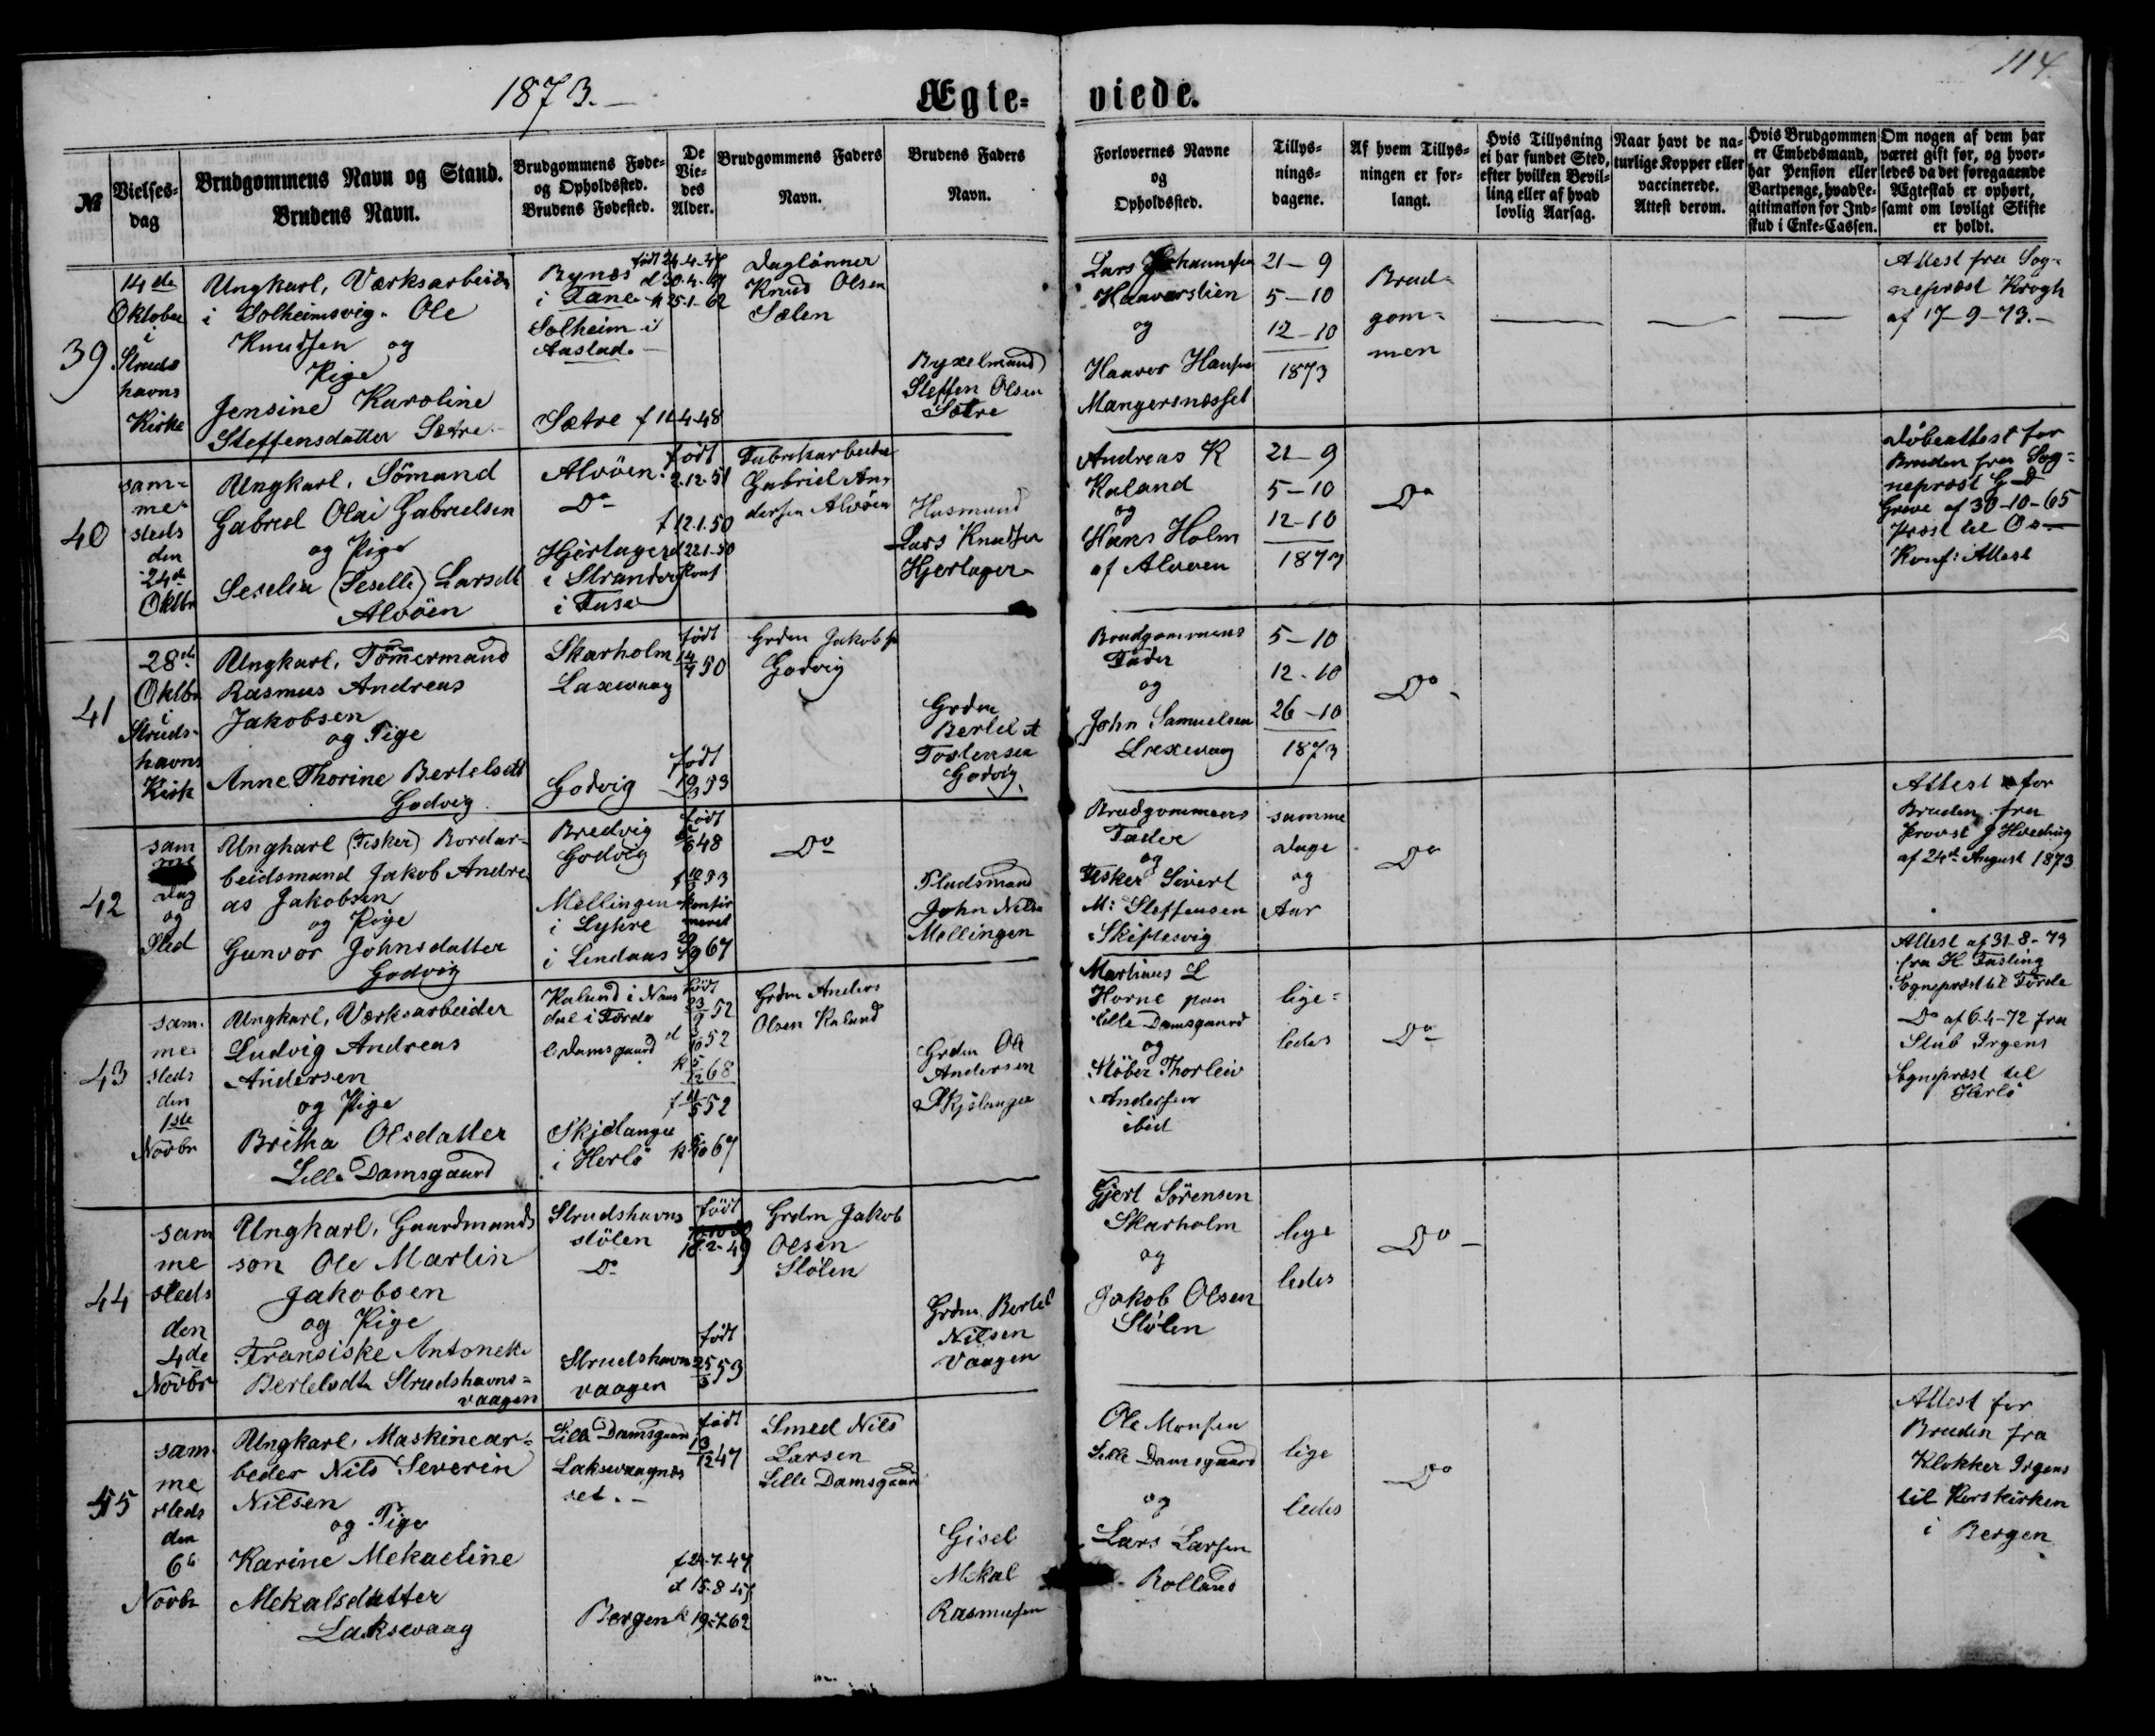 1873.
Ægte-
viede.
114
№
Vielses-
dag
Brudgommens Navn og Stand.
Brudens Navn.
Brudgommens Føde-
og Opholdssted.
Brudens Fødested.
De
Vie-
des
Alder.
Brudgommens Faders
Navn.
Brudens Faders
Navn.
Forlovernes Navne
og
Opholdssted.
Tillys-
nings-
dagene.
Af hvem Tillys-
ningen er for-
langt.
Hvis Tillysning
ei har fundet Sted,
efter hvilken Bevil-
ling eller af hvad
lovlig Aarsag.
Naar havt de na-
turlige Kopper eller
vaccinerede.
Attest derom.
Hvis Brudgommen
er Embedsmand,
har Pension eller
Vartpenge, hvad Le-
gitimation for Ind-
skud i Enke-Cassen.
Om nogen af dem har
været gift før, og hvor-
ledes da det foregaaende
Ægteskab er ophørt,
samt om lovligt Skifte
er holdt.
39
14de
Oktober
i
Struds
havns
Kirke
Ungkarl, Værksarbeider
i Solheimsvig. Ole
Knudsen og
Pige
Jensine Karoline
Steffensdatter Sætre.
Bynæs
i Fane
Solheim i
Aastad.
Sætre
født 24-4-47
d 30-4-47
k 25-1-62
f 11-4-48
Daglønner
Knud Olsen
Sælen
Byxelmand
Steffen Olsen
Sætre
Lars Johannesen
Haaverstien
og
Haaver Hansen
Mangersnæsset
21-9
5-10
12-10
1873
Brud-
gom-
men
Attest fra Sog-
nepræst Krogh
af 17-9-73.
40
sam-
me-
steds
den
24de
Oktbr
Ungkarl, Sömand
Gabriel Olai Gabrielsen
og Pige
Seselia (Seselle) Larsdt
Alvöen
Alvöen.
Do
Hjertager
i Strandvig
i Fuse
født
2.12.51
f 12.1.50
d 22.1.50
konf
Fabrikarbeider
Gabriel An-
dersen Alvöen
Husmand
Lars Knudsen
Hjertager
Andreas K
Kaland
og
Hans Holm
af Alvøen
21-9
5-10
12-10
1873
Do
Döbeattest for
Bruden fra Sog-
nepræst G D
Greve af 30-10-65
Præst til Os
Konf: Attest
41
28de
Oktbr
i
Struds-
havns
Kirk
Ungkarl, Tömmermand
Rasmus Andreas
Jakobsen
og Pige
Anne Thorine Bertelsdt
Godvig.
Skarholm
Laxevaag
Godvig
født
14/7 50
født
19/3 53
Grdm Jakob
Godvig
Grdm
Bertel A
Tostensen
Godvig.
Brudgommens
Fader
og
John Samuelsen
Laxevaag
5-10
12-10
26-10
1873
Do
42
sam
me
Dag
og
Sted
Ungkarl (Fisker) Bordar-
beidsmand Jakob Andre-
as Jakobsen
og Pige
Gunvor Johnsdatter
Godvig
Bredvig
Godvig
Mellingen
i Lyhre
i Lindaas
født
48
53
konfir
meret
29/9 67
Do
Pladsmand
John Nilsen
Mellingen
Brudgommens
Fader
og
Fisker Sivert
M: Steffensen
Skiftesvig
samme
Dage
og
Aar
Do
Attest for
Bruden fra
Provst J Hveding
af 24de August 1873
43
sam-
me-
steds
den
1ste
Novbr
Ungkarl, Værksarbeider
Ludvig Andreas
Andersen
og Pige
Britha Olsdatter
Lille Damsgaard
Kaland i Naus
dal i Førde
L. Damsgaard
Skjelanger
i Herlö
født
23/9 52
d 3/10 52
k 5/12 68
f 11/5 52
k 5/10 67
Grdm Anders
Olsen Kaland
Grdm Ole
Andersen
Skjelanger
Martinus L
Horne paa
Lille Damsgaard
og
Støber Thorleiv
Andersen
ibid
lige-
ledes
Do
Attest af 31-8-73
fra H. Fasting
Sognepræst til Förde
Do af 6.4-72 fra
Stub Irgens
Sognepræst til
Herlö
44
sam
me
steds
den
4de
Novbr
Ungkarl, Gaardmands
søn Ole Martin
Jakobsen
og Pige
Fransiske Antonette
Bertelsdtr Strudshavns-
vaagen
Strudshavns
stölen
Do
Strudshavns
vaagen
født
18.2-49
født
25/3 53
Grdm Jakob
Olsen
Stölen
Grdm. Bertel
Nilsen
Vaagen
Gjert Sörensen
Skarholm
og
Jakob Olsen
Stölen
lige
ledes
Do
45
sam-
me
steds
den
6te
Novbr
Ungkarl, Maskinear-
beder Nils Severin
Nilsen
og Pige
Karine Mekaeline
Mekalsdatter
Laksevaag
Lille Damsgaard
Laksevaagnæs
set.
Bergen
født
13/12 47
f 24.7.47
d 15.8.47
k 19-7-62
Smed Nils
Larsen
Lille Damsgaard
Gisel
Mekal
Rasmusen
Ole Monsen
Lille Damsgaard
og
Lars Larsen
Rolland
lige
ledes
Do
Attest for
Bruden fra
Klokker Irgens
til Korskirken
i Bergen